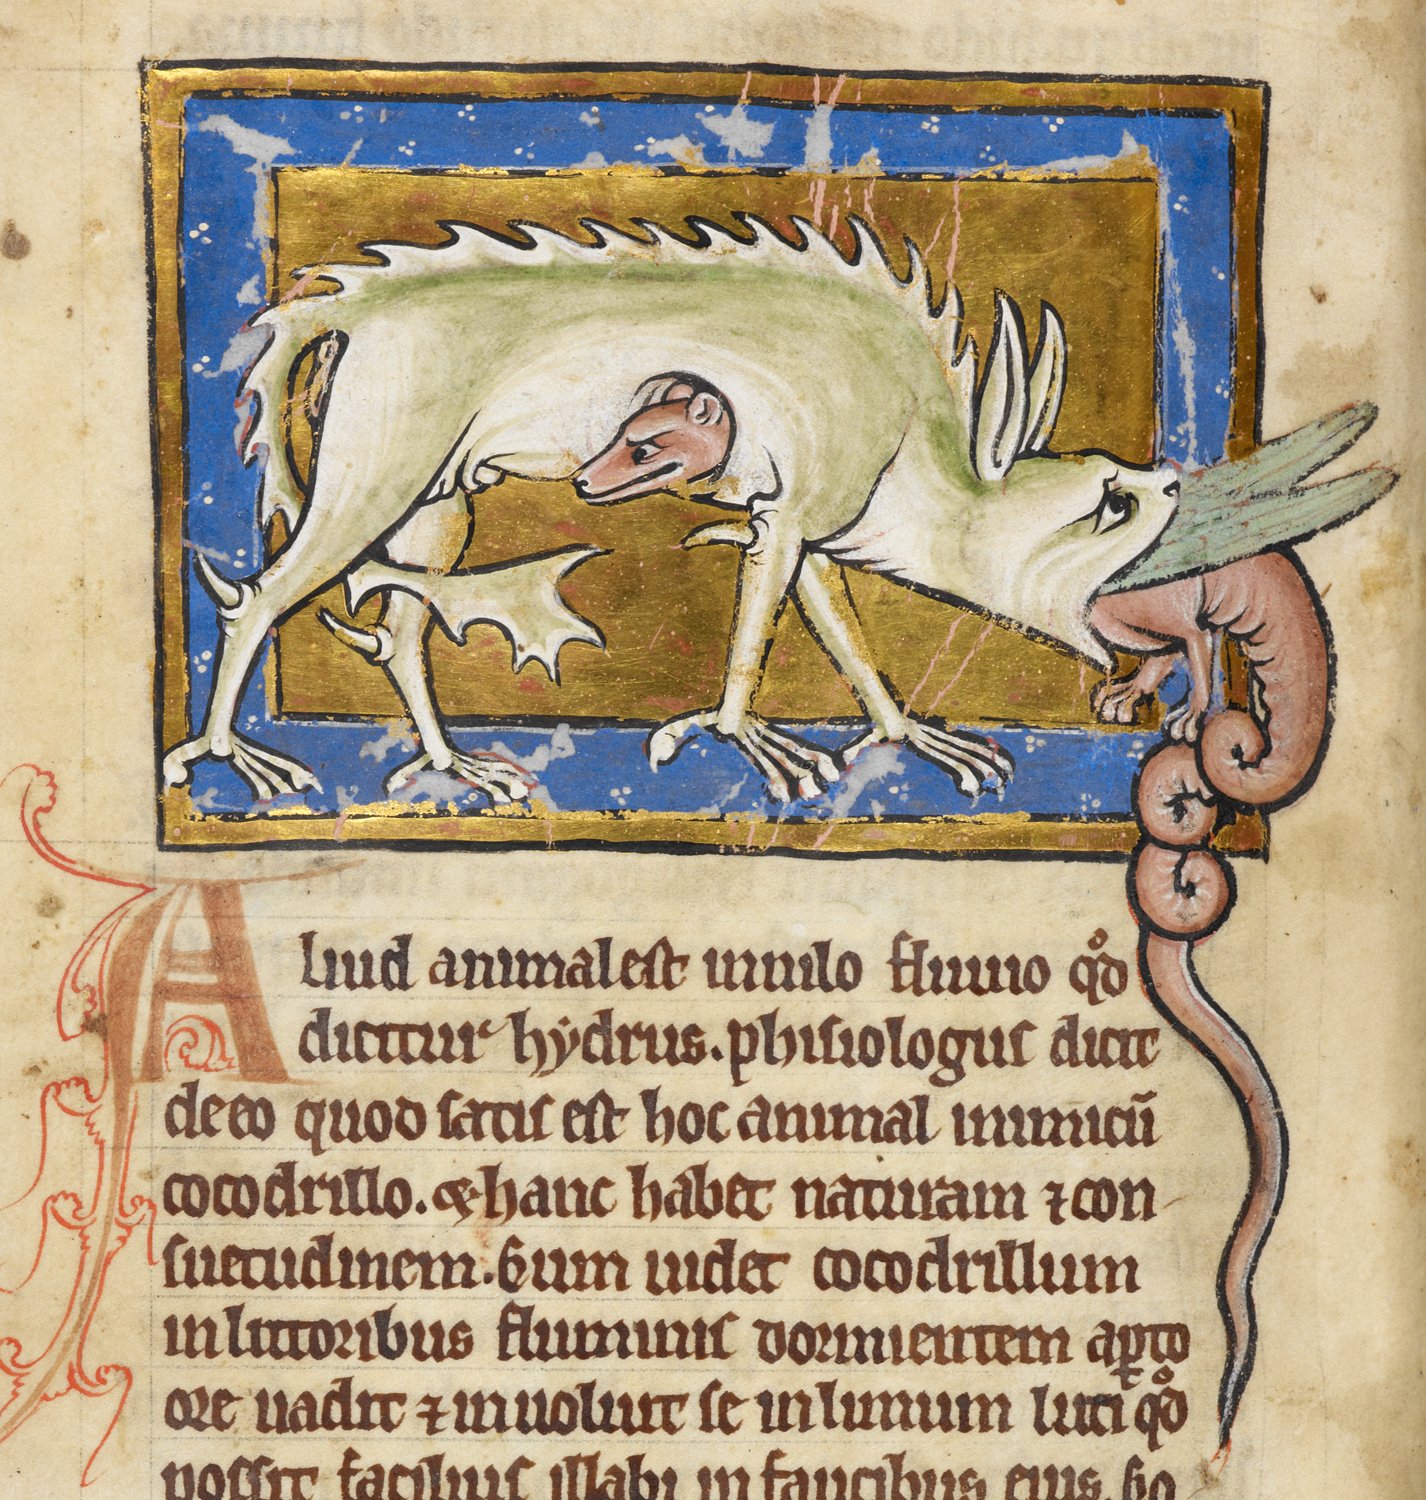 Aliud animal est in nilo fluuio qͦd
dicitur hẏdrus. phisiologus dicit
de eo quod satis est hoc animal inimicū
cocodrillo. & hanc habet naturam ⁊ con
suetudinem. Cum uidet cocodrillum
in littoribus fluminis dormientem aꝑto
ore uadit ⁊ inuoluit se in limum luti qͦd
possit facilius illabi in faucibus eius. Co